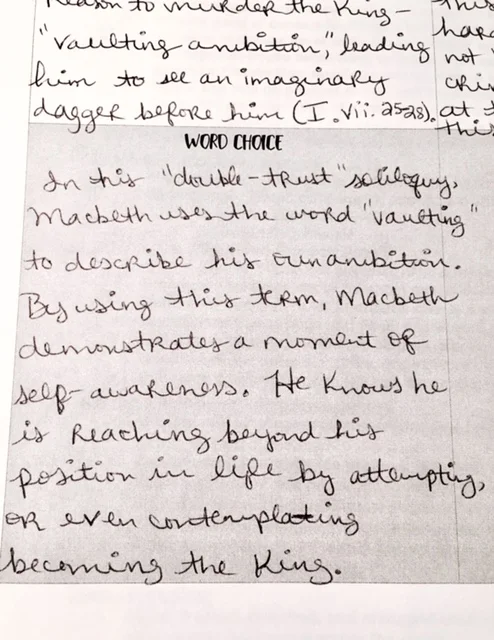 Reason to murder the King—
"vaulting ambition," leading
him to see an imaginary
dagger before him (I.vii.25-28).
WORD CHOICE
In this "double-trust" soliloquy,
Macbeth uses the word "vaulting"
to describe his own ambition.
By using this term, Macbeth
demonstrates a moment of
self-awareness. He knows he
is reaching beyond his
position in life by attempting,
or even contemplating
becoming the King.
This
hard
not
crim
at
this